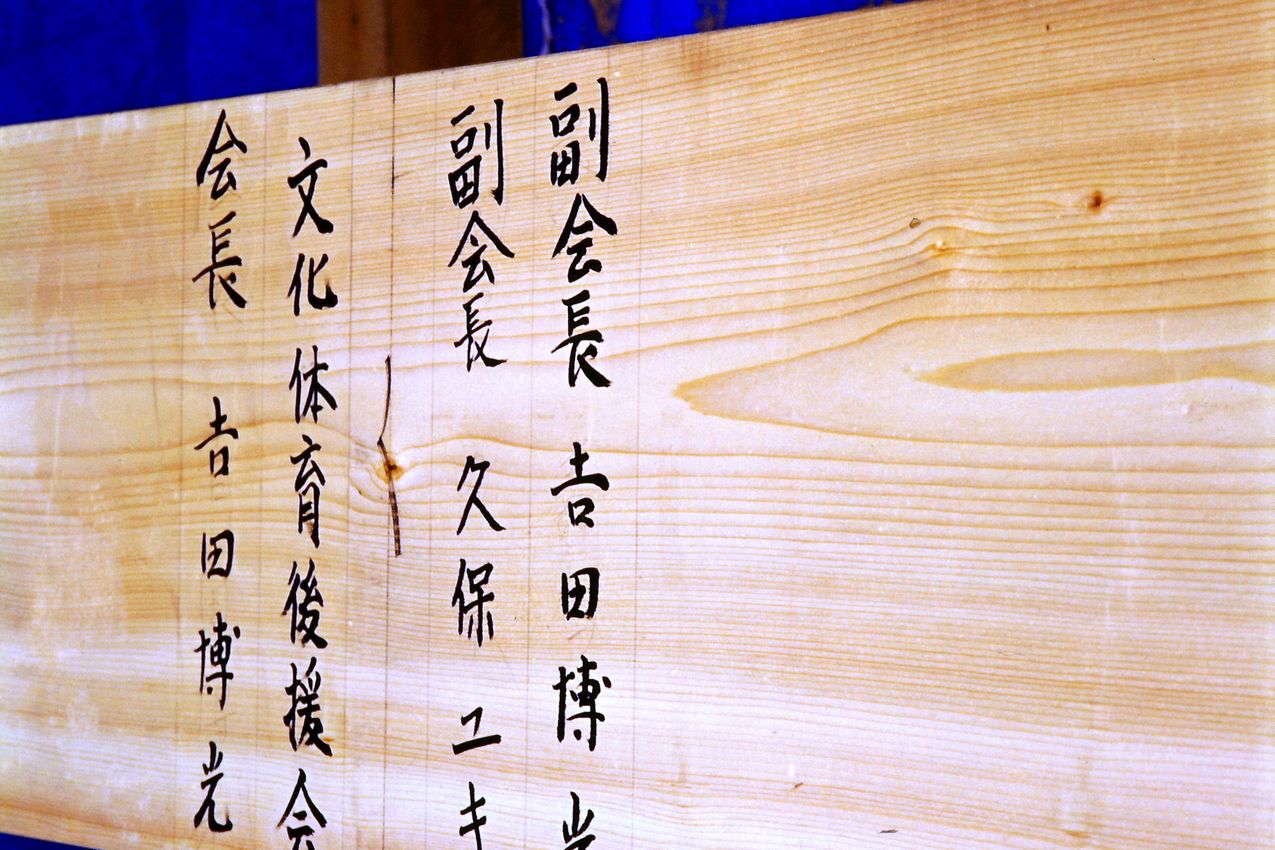 副会長 𠮷田博光
副会長 久保ユキ
文化体育後援会
会長 𠮷田博光